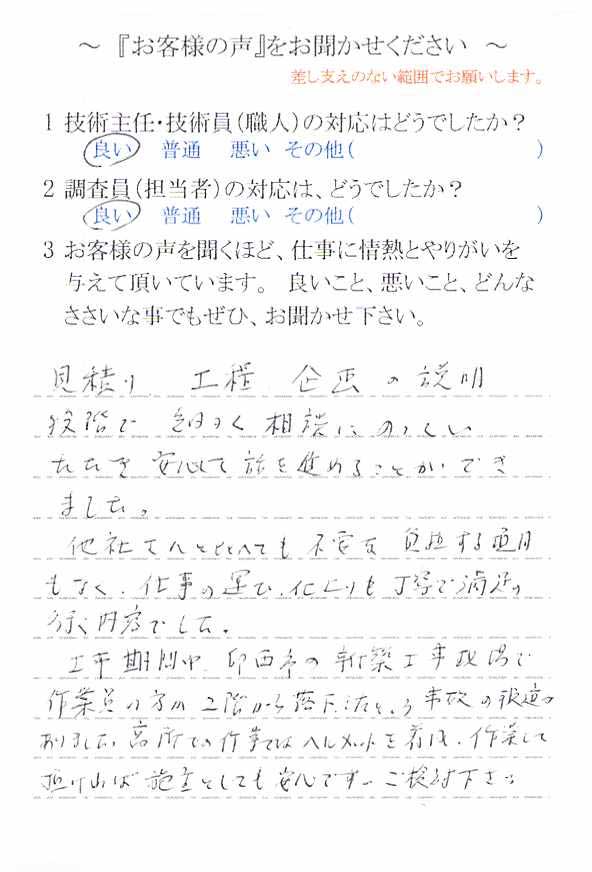 ～ 『お客様の声』をお聞かせください ～
差し支えのない範囲でお願いします。
1 技術主任・技術員(職人)の対応はどうでしたか？
良い 普通 悪い その他( )
2 調査員(担当者)の対応は、どうでしたか？
良い 普通 悪い その他( )
3 お客様の声を聞くほど、仕事に情熱とやりがいを
与えて頂いています。 良いこと、悪いこと、どんな
ささいな事でもぜひ、お聞かせ下さい。
見積り 工程 企画 の説明
段階で 細かく 相談にのってい
ただき 安心して話を進めることができ
ました。
他社さんとくらべても 不要な 負担する費用
もなく、仕事の運び、仕上りも 丁寧で満足の
行く内容でした。
工事期間中 印西市の新築工事現場で
作業員の方が 2階から落下したという 事故の報道が
ありました。高所での作業ではヘルメットを着け、作業して
頂ければ 施主としても 安心です。ご検討下さい